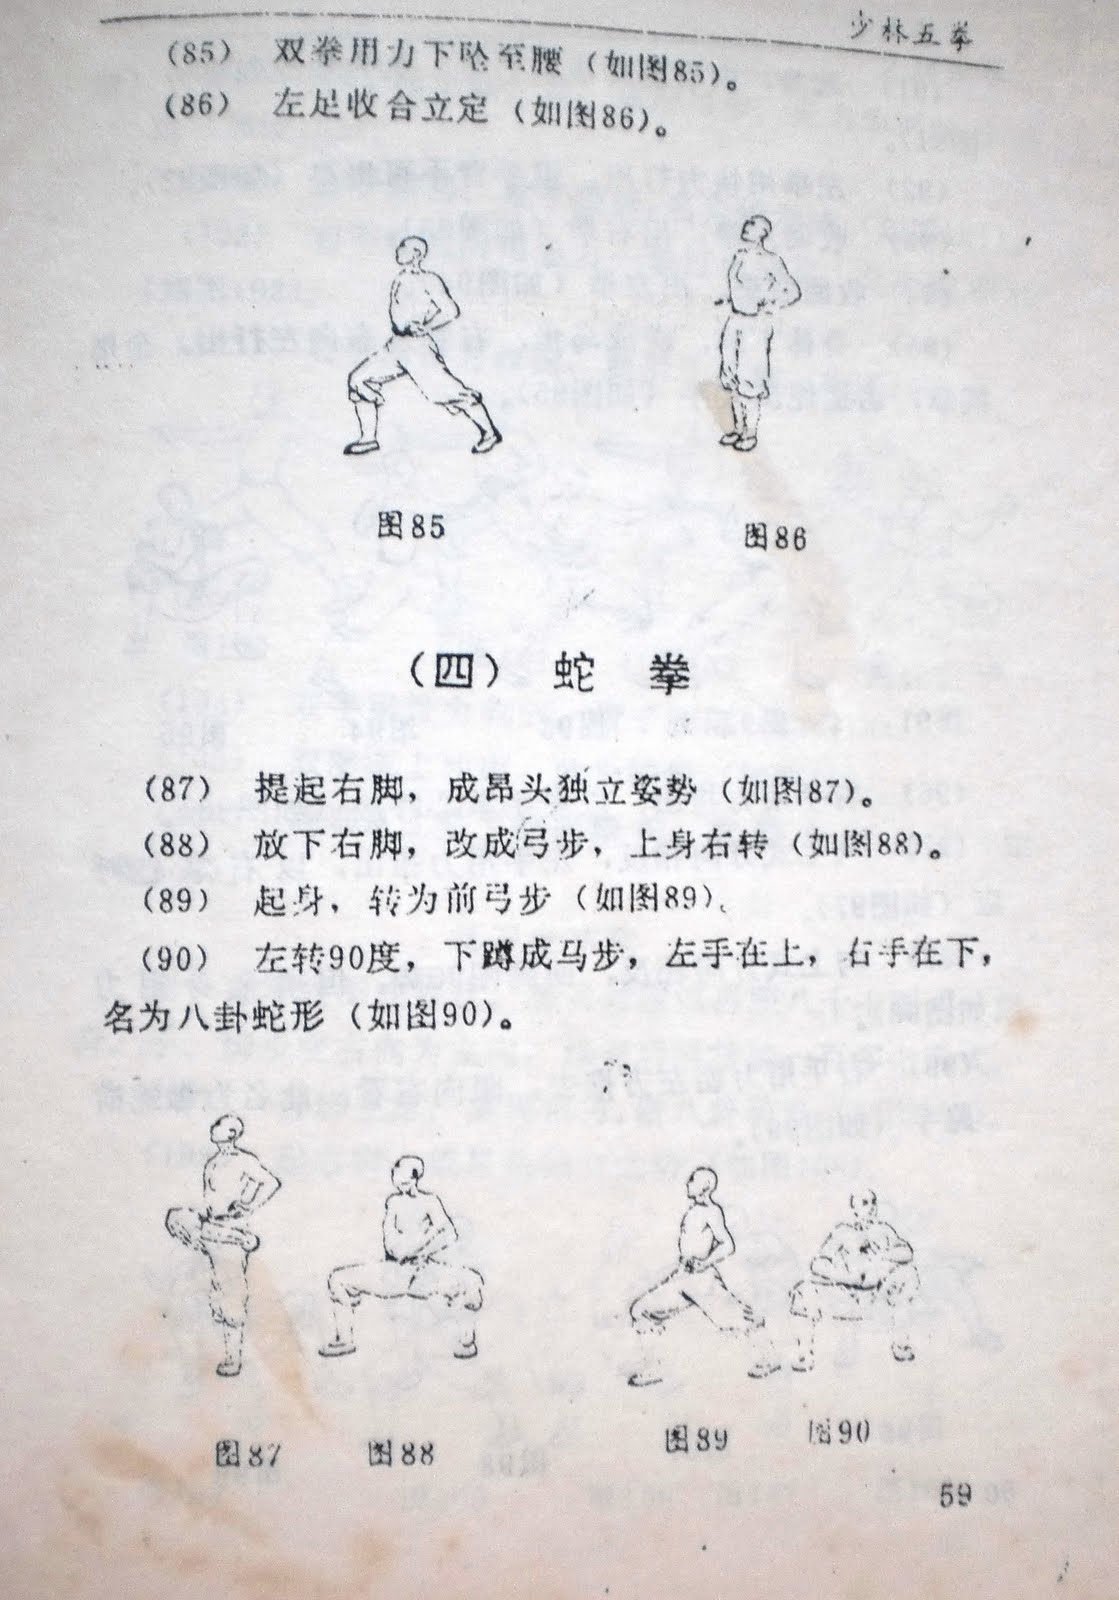 少林五拳
(85) 双拳用力下坠至腰（如图85）。
(86) 左足收合立定（如图86）。
图85
图86
（四） 蛇 拳
(87) 提起右脚，成昂头独立姿势（如图87）。
(88) 放下右脚，改成弓步，上身右转（如图88）。
(89) 起身，转为前弓步（如图89）、
(90) 左转90度，下蹲成马步，左手在上，右手在下，
名为八卦蛇形（如图90）。
图87
图88
图89
图90
59